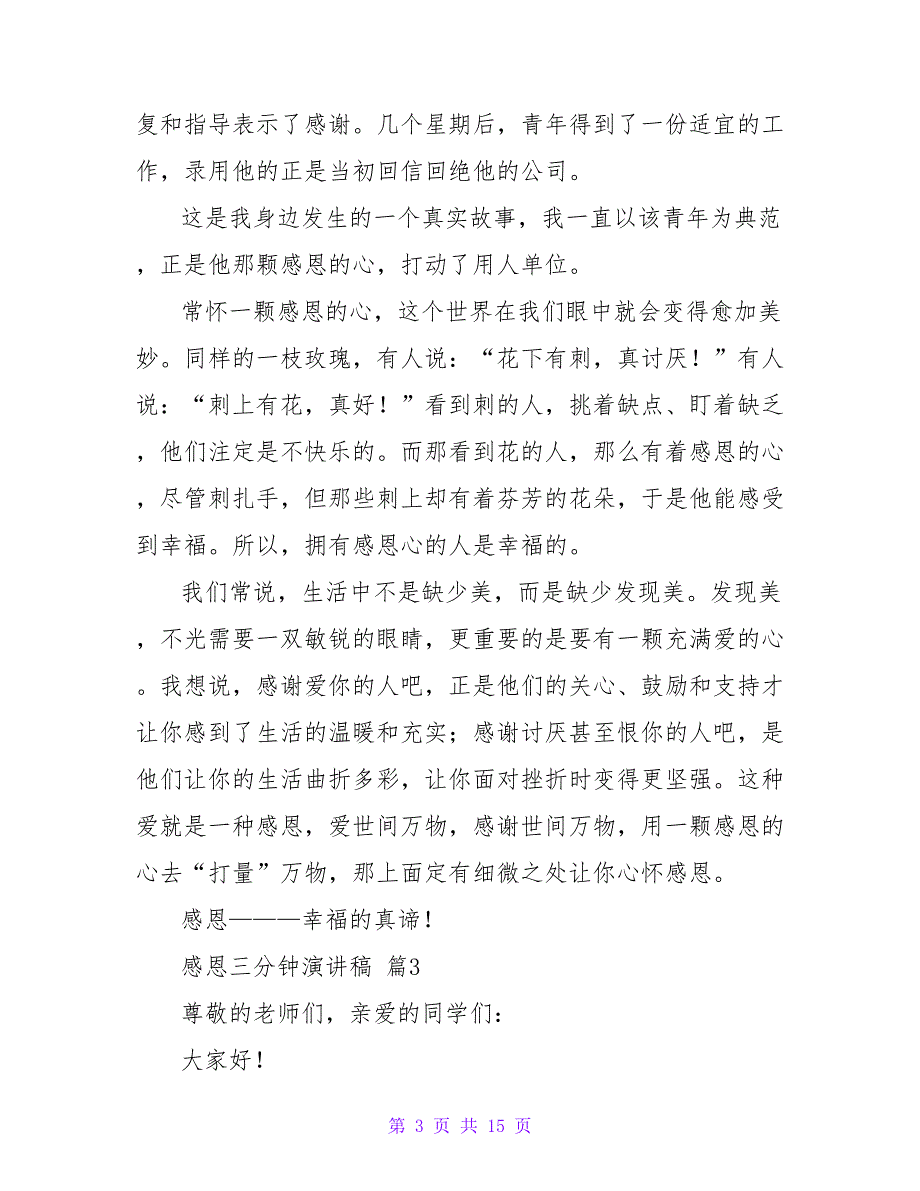 复和指导表示了感谢。几个星期后，青年得到了一份适宜的工
作，录用他的正是当初回信回绝他的公司。
这是我身边发生的一个真实故事，我一直以该青年为典范
，正是他那颗感恩的心，打动了用人单位。
常怀一颗感恩的心，这个世界在我们眼中就会变得愈加美
妙。同样的一枝玫瑰，有人说：“花下有刺，真讨厌！”有人
说：“刺上有花，真好！”看到刺的人，挑着缺点、盯着缺乏
，他们注定是不快乐的。而那看到花的人，那么有着感恩的心
，尽管刺扎手，但那些刺上却有着芬芳的花朵，于是他能感受
到幸福。所以，拥有感恩心的人是幸福的。
我们常说，生活中不是缺少美，而是缺少发现美。发现美
，不光需要一双敏锐的眼睛，更重要的是要有一颗充满爱的心
。我想说，感谢爱你的人吧，正是他们的关心、鼓励和支持才
让你感到了生活的温暖和充实；感谢讨厌甚至恨你的人吧，是
他们让你的生活曲折多彩，让你面对挫折时变得更坚强。这种
爱就是一种感恩，爱世间万物，感谢世间万物，用一颗感恩的
心去“打量”万物，那上面定有细微之处让你心怀感恩。
感恩———幸福的真谛！
感恩三分钟演讲稿 篇3
尊敬的老师们，亲爱的同学们：
大家好！
第 3 页 共 15 页